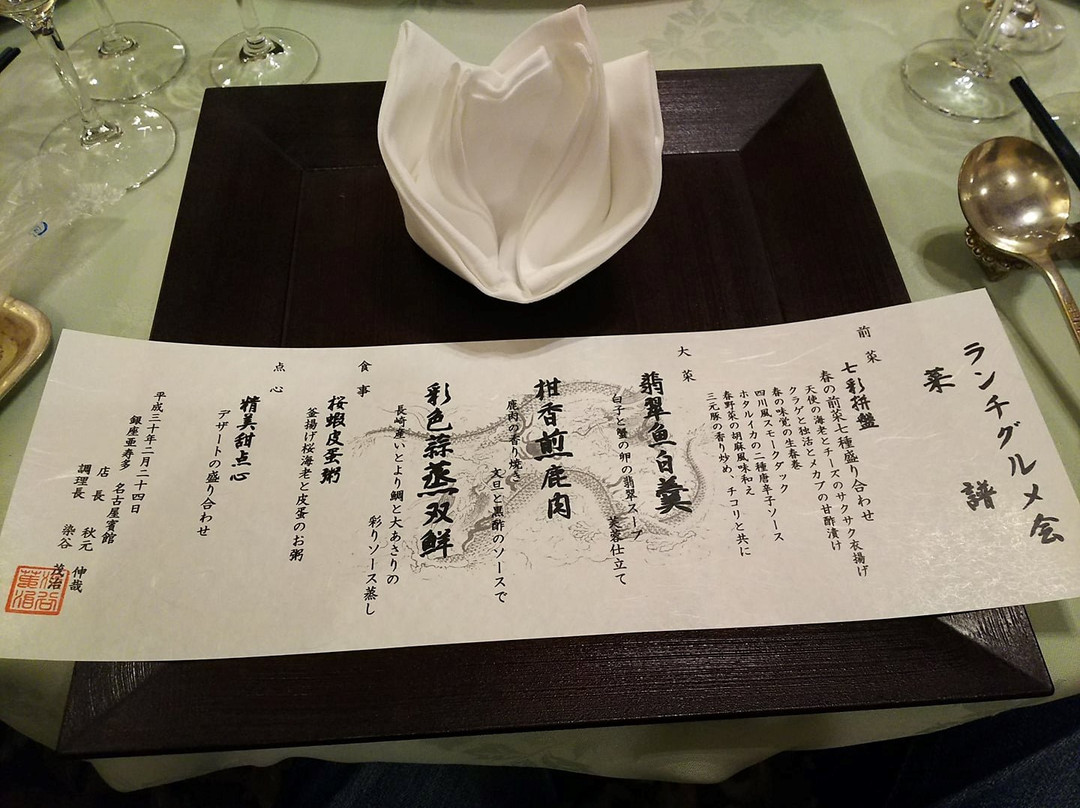 ランチグルメ会
菜 譜
前菜
七彩拼盤
春の前菜七種盛り合わせ
天使の海老とチーズのサクサク衣揚げ
クラゲと独活とメカブの甘酢漬け
春の味覚の生春巻
四川風スモークダック
ホタルイカの二種唐辛子ソース
春野菜の胡麻風味和え
三元豚の香り炒め、チコリと共に
大菜
翡翠魚白羹
白子と蟹の卵の翡翠スープ
芙蓉仕立て
柑香煎鹿肉
鹿肉の香り焼き
文旦と黒酢のソースで
彩色蒜蒸双鮮
長崎産いとより鯛と大あさりの
彩りソース蒸し
食事
桜蝦皮蛋粥
釜揚げ桜海老と皮蛋のお粥
点心
精美甜点心
デザートの盛り合わせ
平成三十年二月二十四日
銀座亜寿多 名古屋賓館
店長 秋元 伸哉
調理長 染谷 茂治